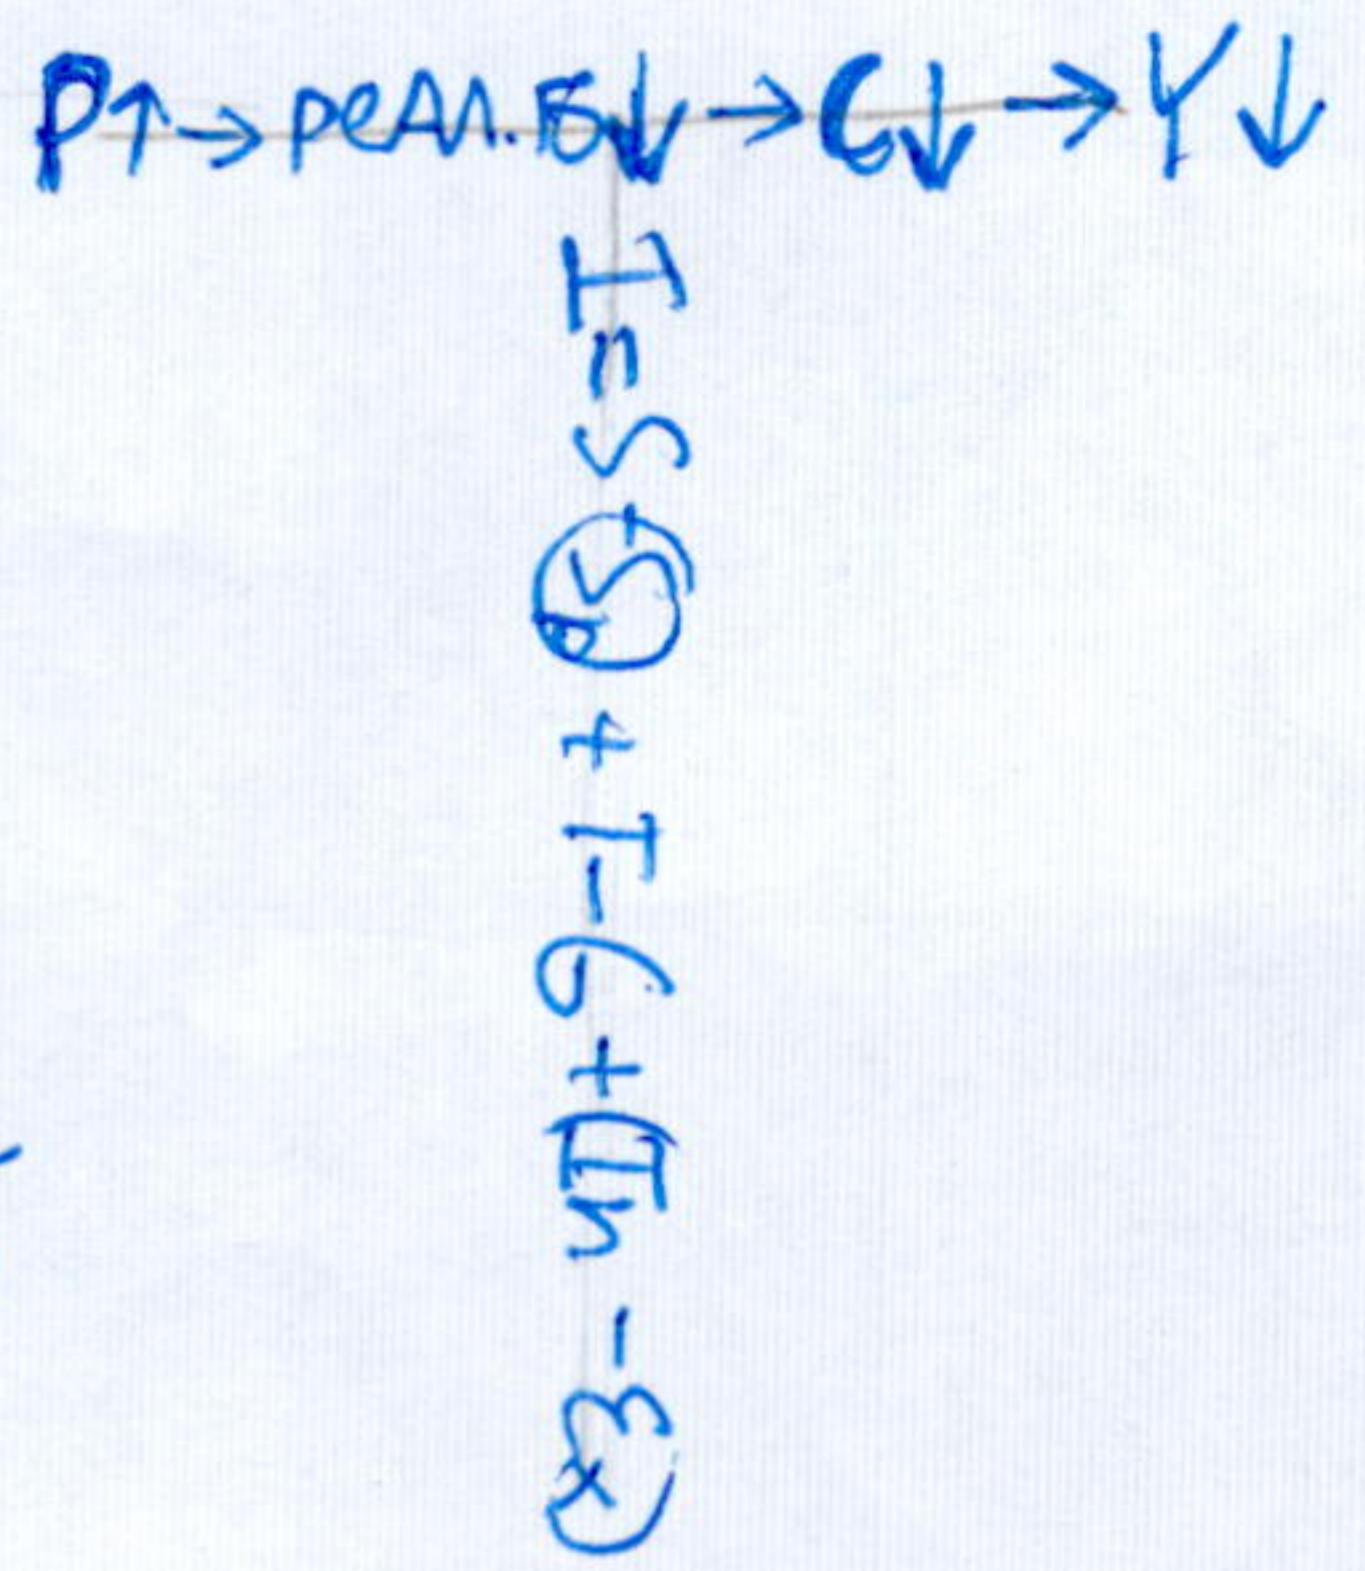 P↑→реал.Б↓→C↓→Y↓
I=S-S + T-G+Im-Ex